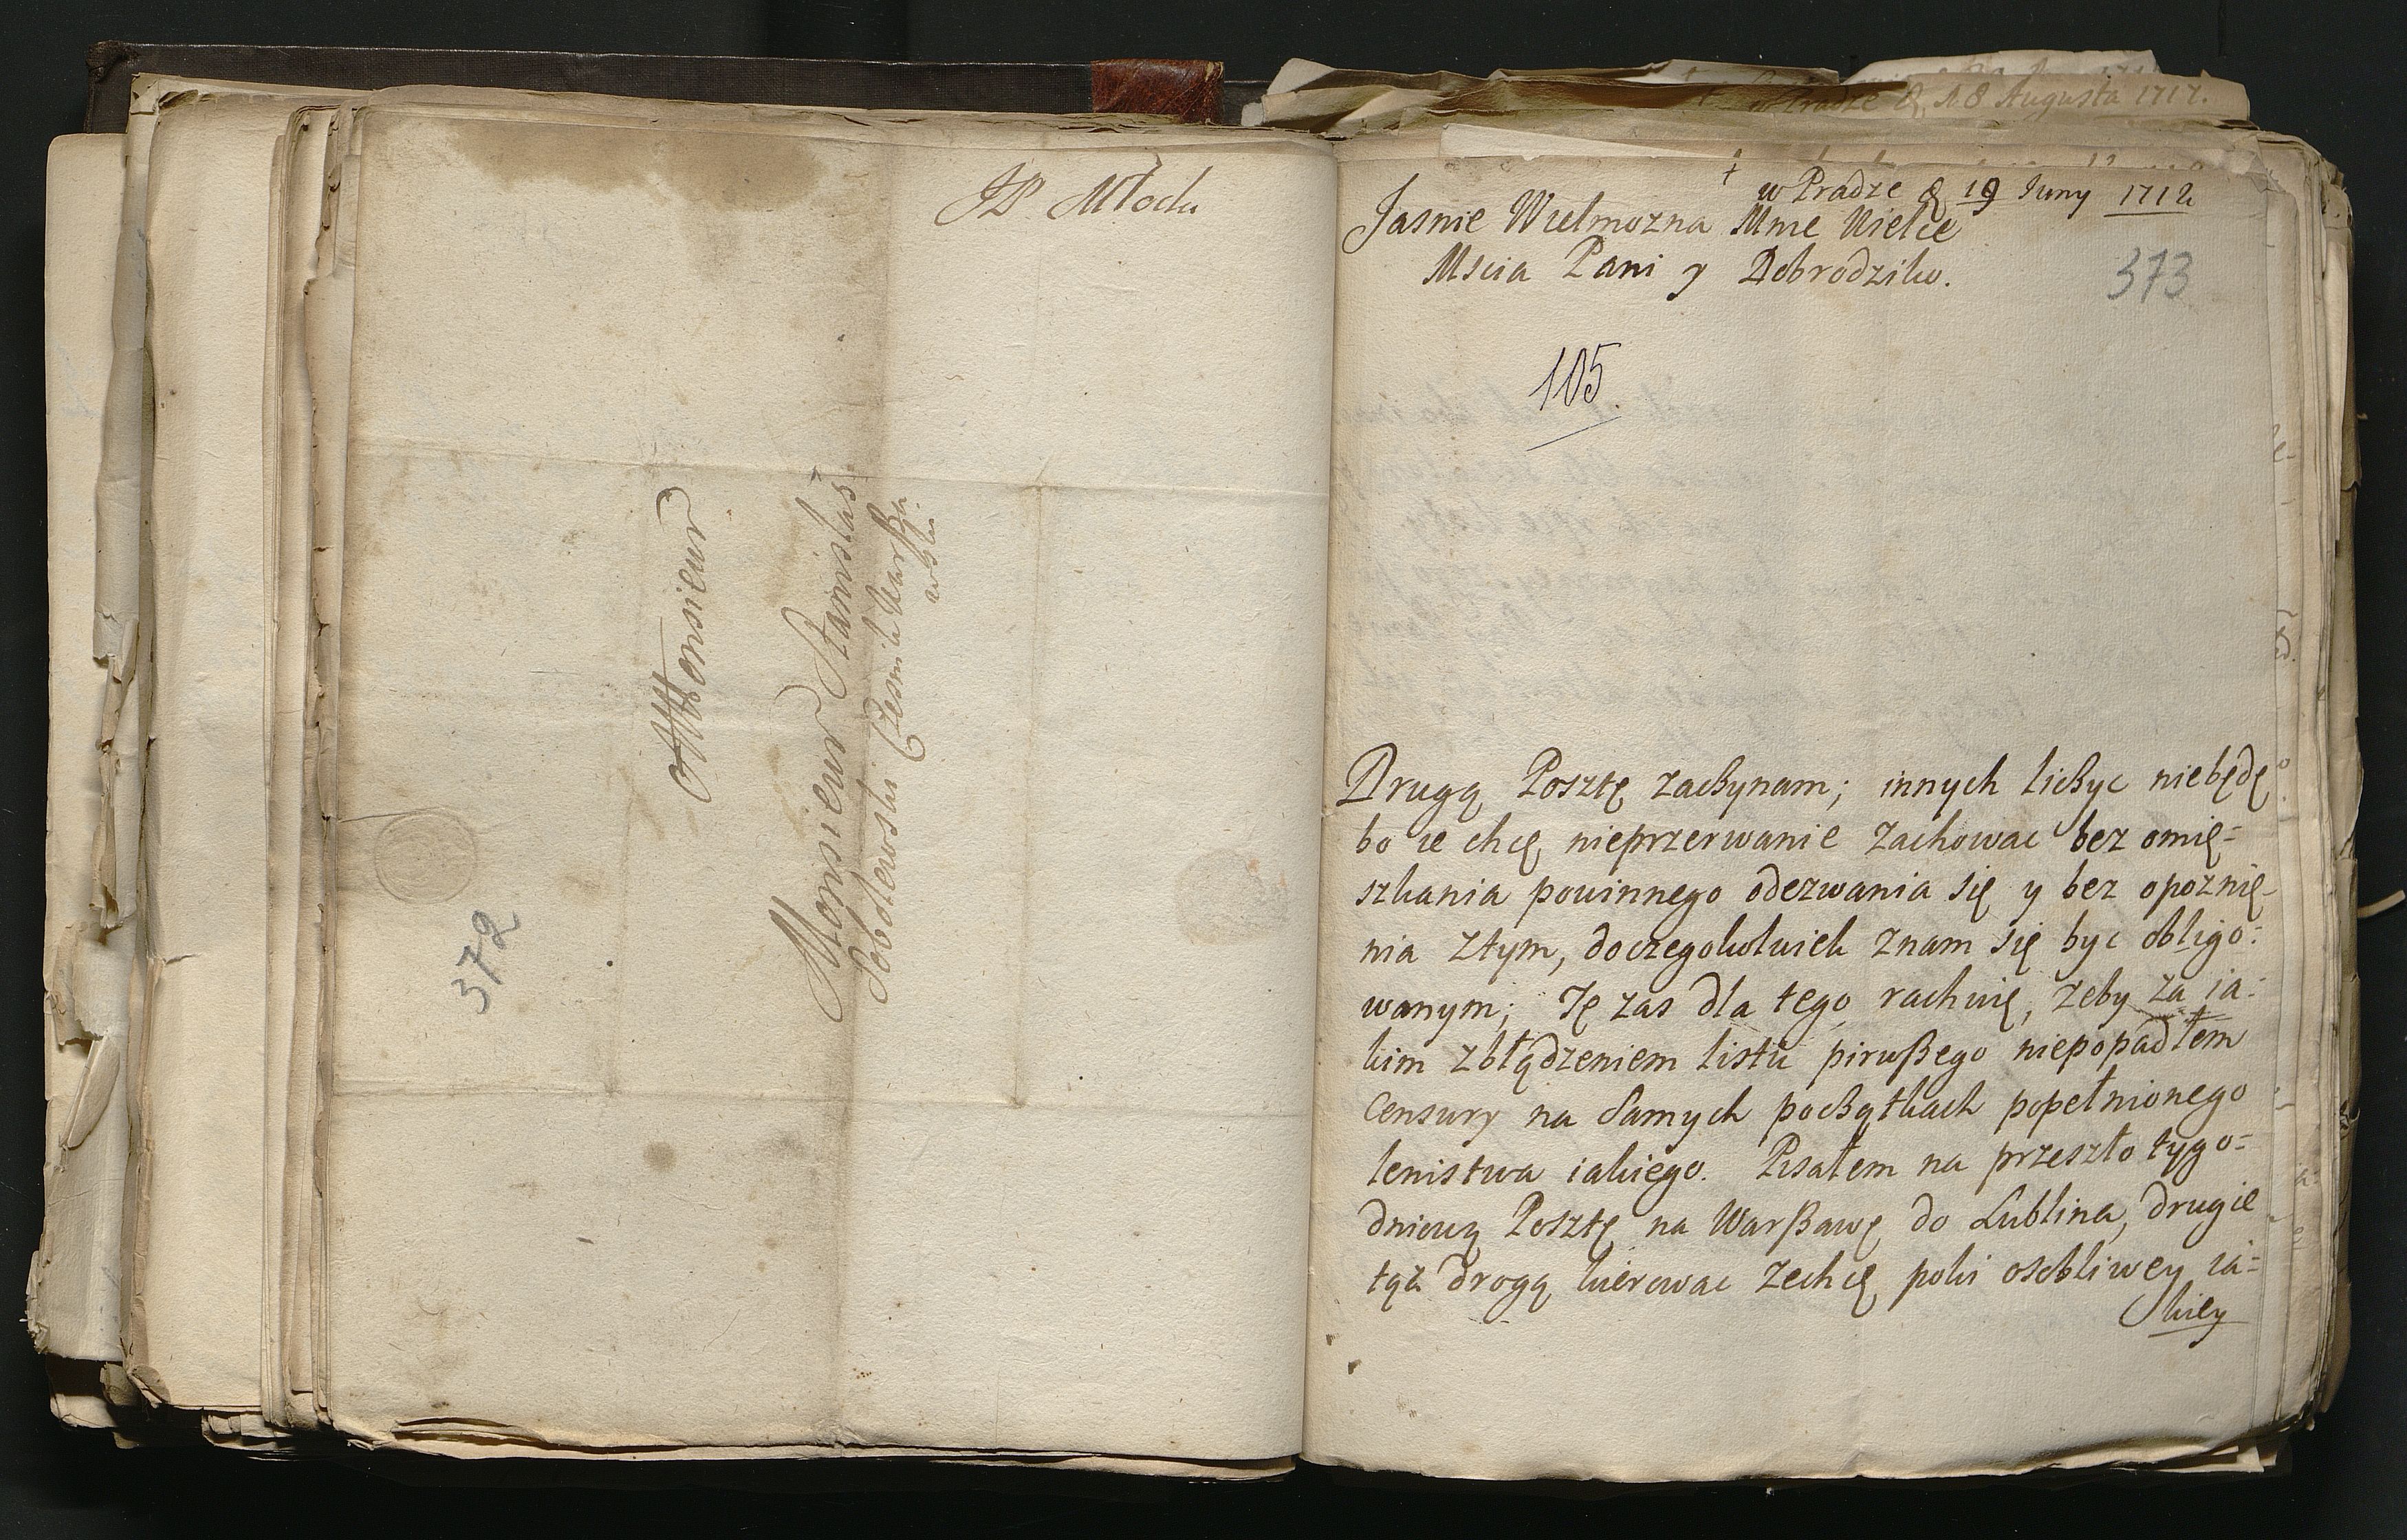 JP. Młocki
Monsieur
Monsieur Stanislas
Sobolewski Czesnik Warßa
wski
372
w Pradze d 18 Augusta 1717.
w Pradze d 19 Juny 1712
Jasnie Wielmozna Mnie Wielce
Mscia Pani y Dobrodziko.
373
105.
Drugą Posztę zaczynam; innych liczyc niebędę
bo ie chcę nieprzerwanie zachowac bez omię=
szkania powinnego odezwania się y bez opoznię-
nia ztym, doczegokolwiek znam się byc obligo=
wanym; Tę zas dla tego rachuię, zeby za ia=
kim zbłądzeniem listu pirwßego niepopadłem
Censury na samych początkach popełnionego
lenistwa iakiego. Pisałem na przeszło tygo=
dniową Posztę na Warßawę do Lublina, drugie
tąż drogą kierowac zechcę poki osobliwey ia=
kiey